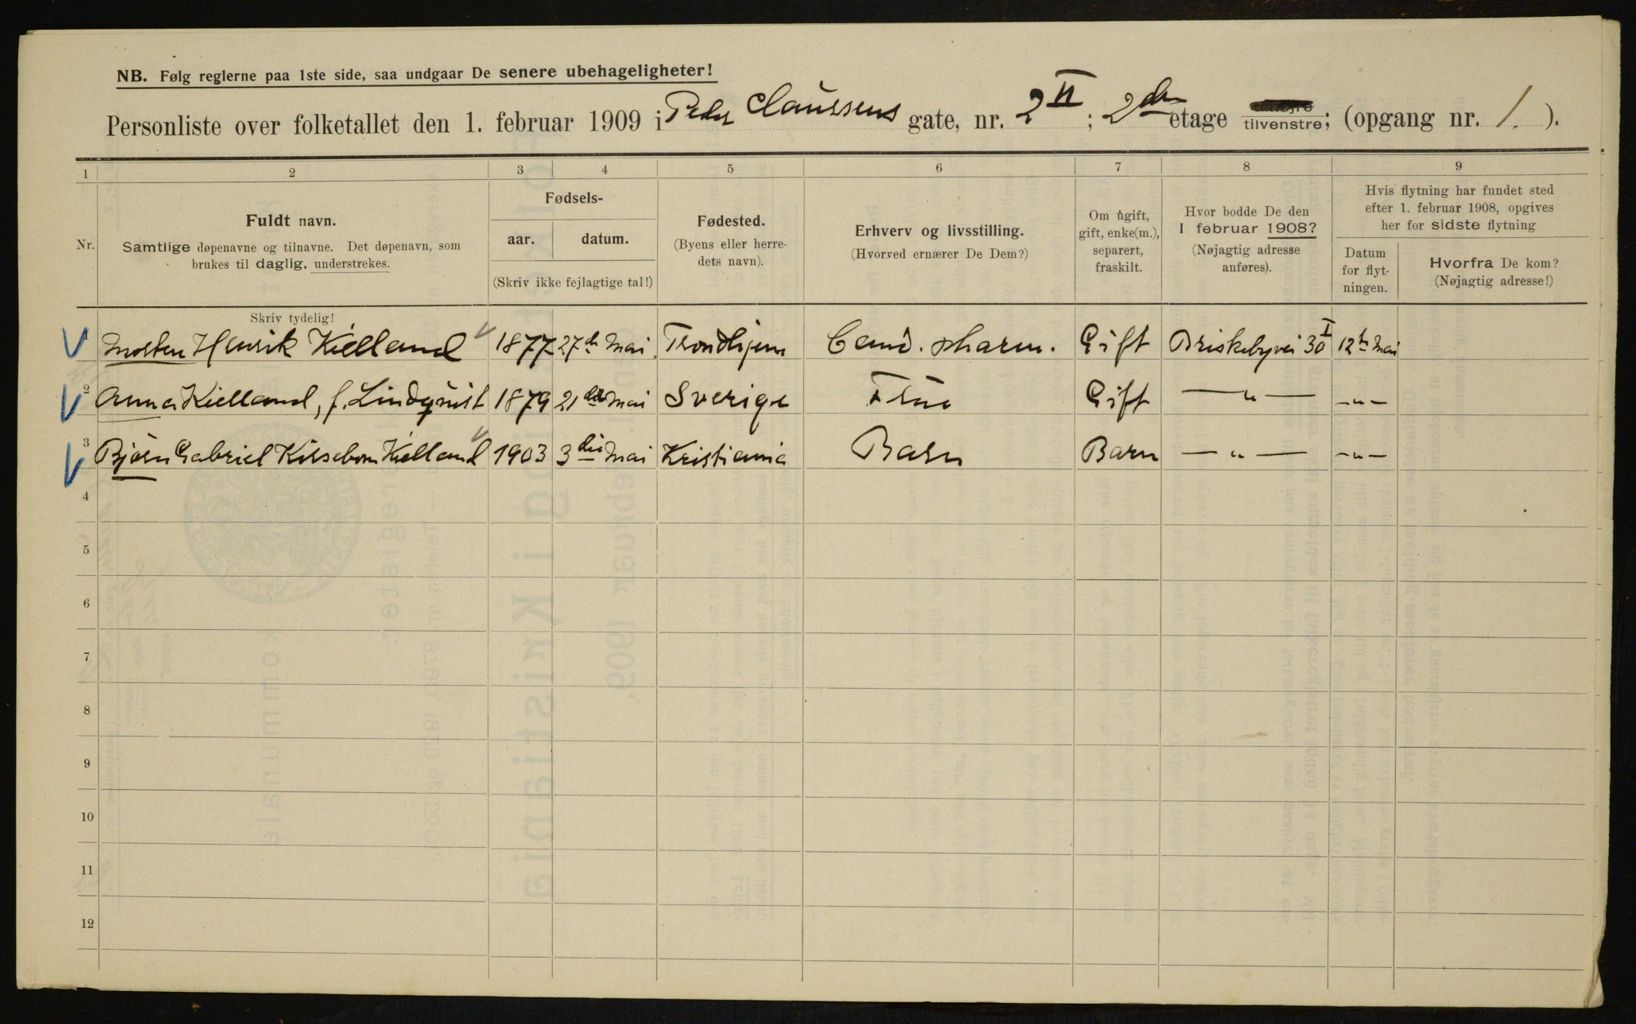 NB. Følg reglerne paa 1ste side, saa undgaar De senere ubehageligheter!
Personliste over folketallet den 1. februar 1909 i Peder Claussens gate, nr. 2 II ; 2den etage tilvenstre; (opgang nr. 1. ).
1 2 3 4 5 6 7 8 9
Nr.
Fuldt navn.
Samtlige døpenavne og tilnavne. Det døpenavn, som
brukes til daglig, understrekes.
Fødsels-
aar. datum.
(Skriv ikke feilagtige tal!)
Fødested.
(Byens eller herre-
dets navn).
Erhverv og livsstilling.
(Hvorved ernærer De Dem?)
Om ugift,
gift, enke(m.),
separert,
fraskilt.
Hvor bodde De den
1 februar 1908?
(Nøjagtig adresse
anføres).
Hvis flytning har fundet sted
efter 1. februar 1908, opgives
her for sidste flytning
Datum
for flyt-
ningen.
Hvorfra De kom?
(Nøjagtig adresse!)
Skriv tydelig!
Morten Henrik Kielland 1877 27de Mai Trondhjem Cand. pharm. Gift Briskebyvei 30 I 12te Mai
2 Anna Kielland, f. Lindquist 1879 21de Mai Sverige Frue Gift — " — - " -
3 Bjørn Gabriel Kirsebom Kielland 1903 3die Mai Kristiania Barn Barn — " — - " -
4
5
6
7
8
9
10
11
12